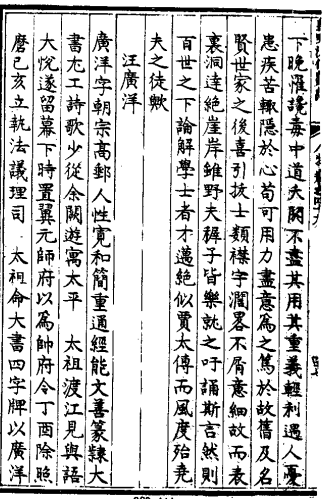 下晚罹讒毒中道夭閼不盡其用其重義輕利遇人憂
患疾苦輒隱於心苟可用力盡意爲之篤於故舊及名
賢世家之後喜引拔士類襟宇濶畧不屑意細故而表
裏洞達絶崖岸雖野夫穉子皆樂就之吁誦斯言然則
百世之下論解學士者才邁絶似賈太傅而風度殆堯
夫之徒歟
汪廣洋
廣洋字朝宗高郵人性寬和簡重通經能文善篆隸大
書尤工詩歌少從余闕遊寓太平 太祖渡江見與語
大悅遂留幕下時置翼元帥府以爲帥府令丁酉除照
磨己亥立執法議理司 太祖命大書四字牌以廣洋